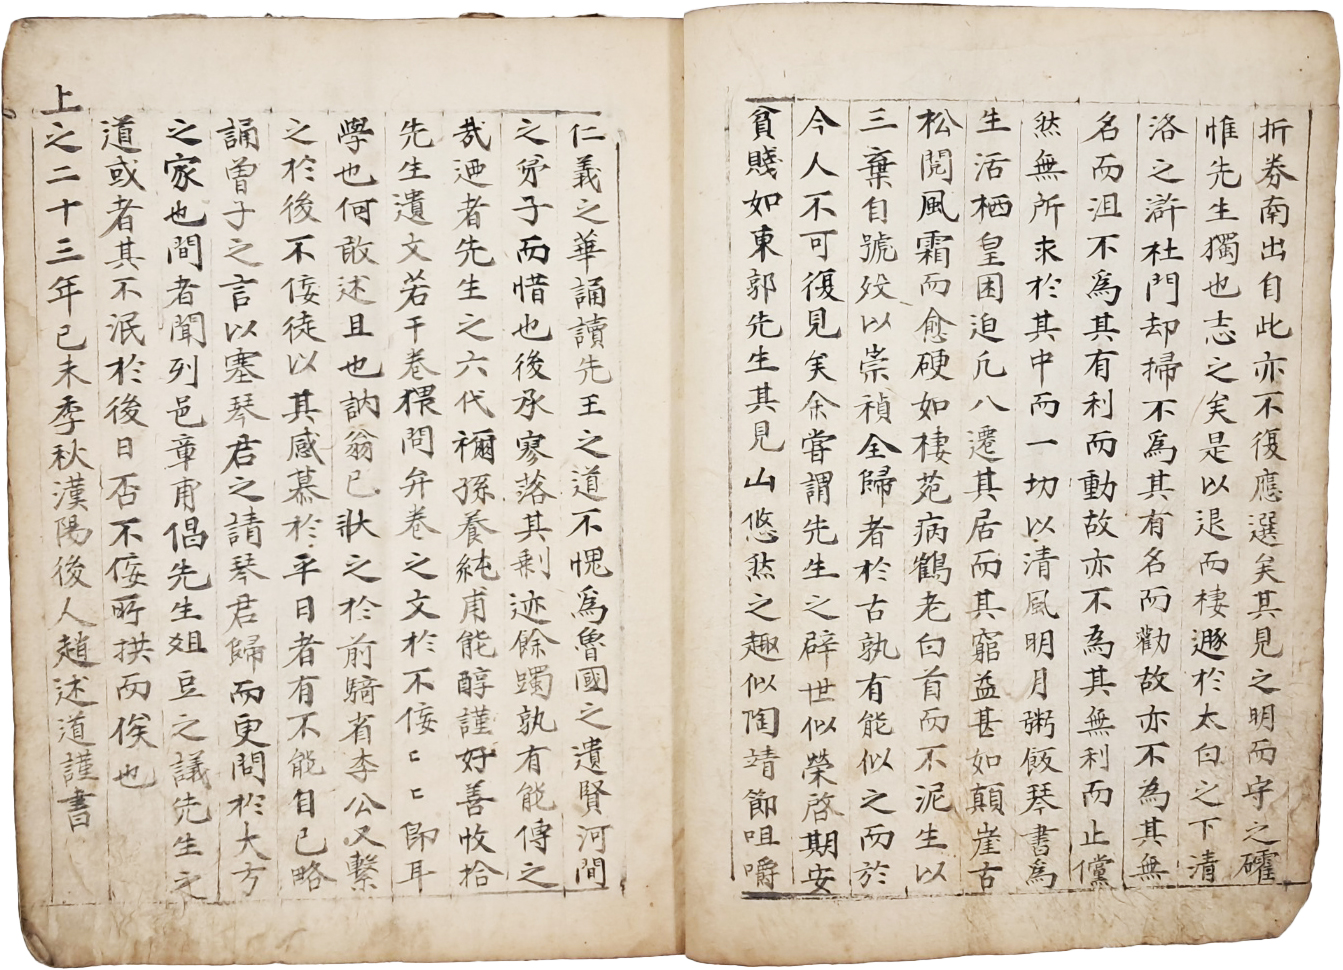 折券南出自此亦不復應選矣其見之明而守之確
惟先生獨也志之矣是以退而棲遯於太白之下清
洛之滸杜門却掃不爲其有名而勸故亦不為其無
名而沮不爲其有利而動故亦不為其無利而止儻
然無所求於其中而一切以清風明月粥飯琴書爲
生活栖皇困迫凡八遷其居而其窮益甚如顛崖古
松閱風霜而愈硬如棲苑病鶴老白首而不泥生以
三棄自號歿以崇禎全歸者於古孰有能似之而於
今人不可復見矣余嘗謂先生之辟世似榮啓期安
貧賤如東郭先生其見山悠然之趣似陶靖節咀嚼
仁義之華誦讀先王之道不愧爲魯國之遺賢河間
之孼子而惜也後承寥落其剩迹餘躅孰有能傳之
哉迺者先生之六代禰孫養純甫能醇謹好善收拾
先生遺文若干卷猥問弁卷之文於不佞匸匸卽耳
學也何敢述且也訥翁已狀之於前騎省李公又繫
之於後不佞徒以其感慕於平日者有不能自已略
誦曾子之言以塞琴君之請琴君歸而更問於大方
之家也間者聞列邑章甫倡先生俎豆之議先生之
道或者其不泯於後日否不佞所拱而俟也
上之二十三年己未季秋漢陽後人趙述道謹書